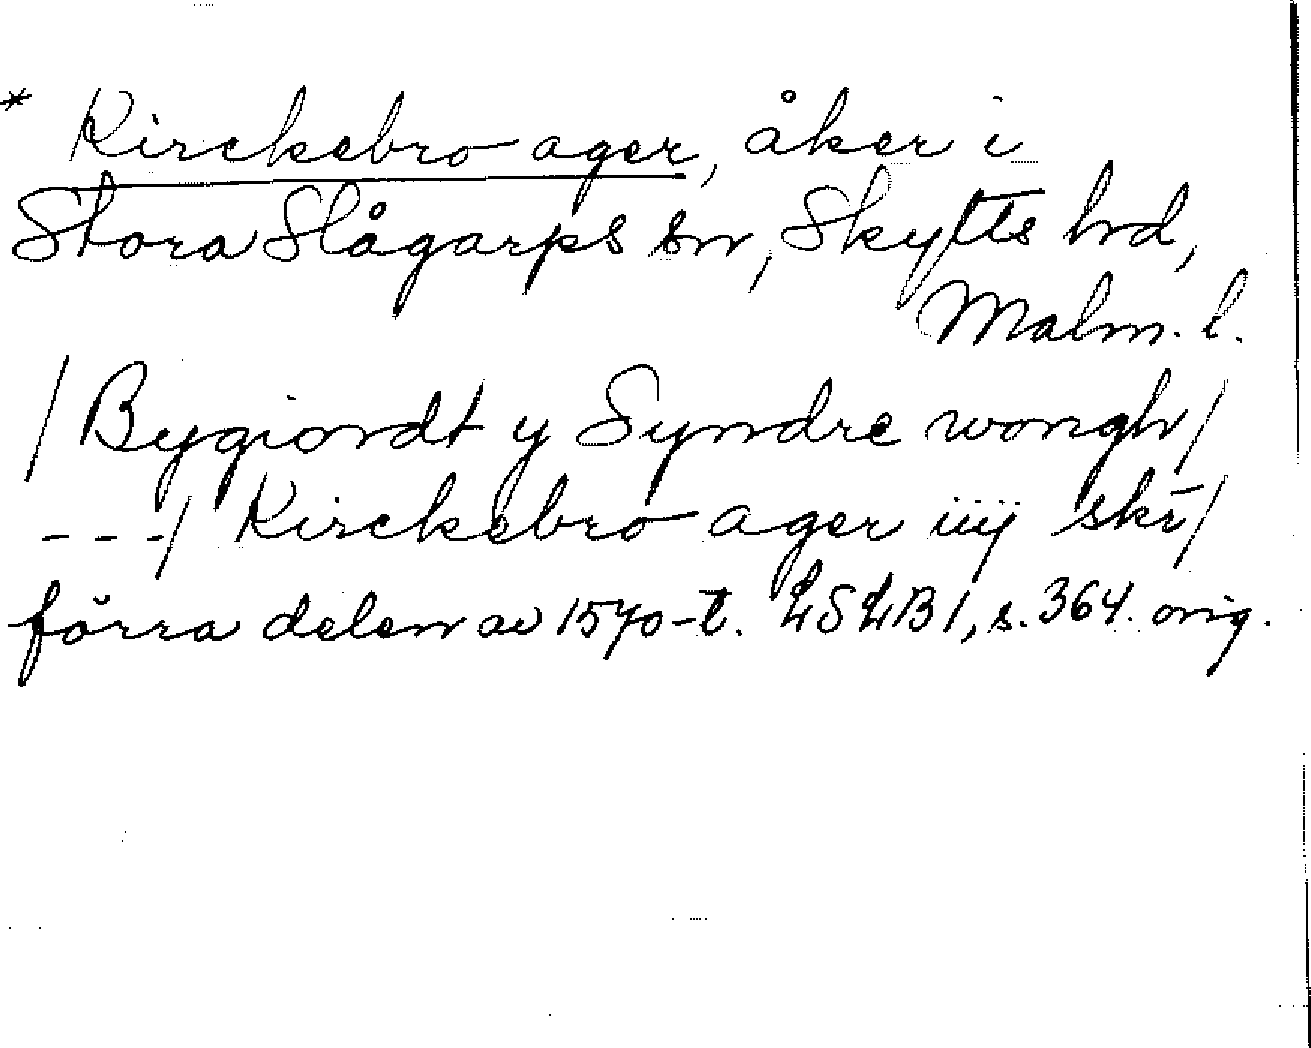 * Kirckebro ager, åker i
Stora Slågarps sn, Skytts hd,
Malm. l.
/ Bygiordt y Syndre wongh /
- - - / Kirckebro ager iiij skr̄ /
förra delen av 1570-t. LSLB 1, s. 364. orig.